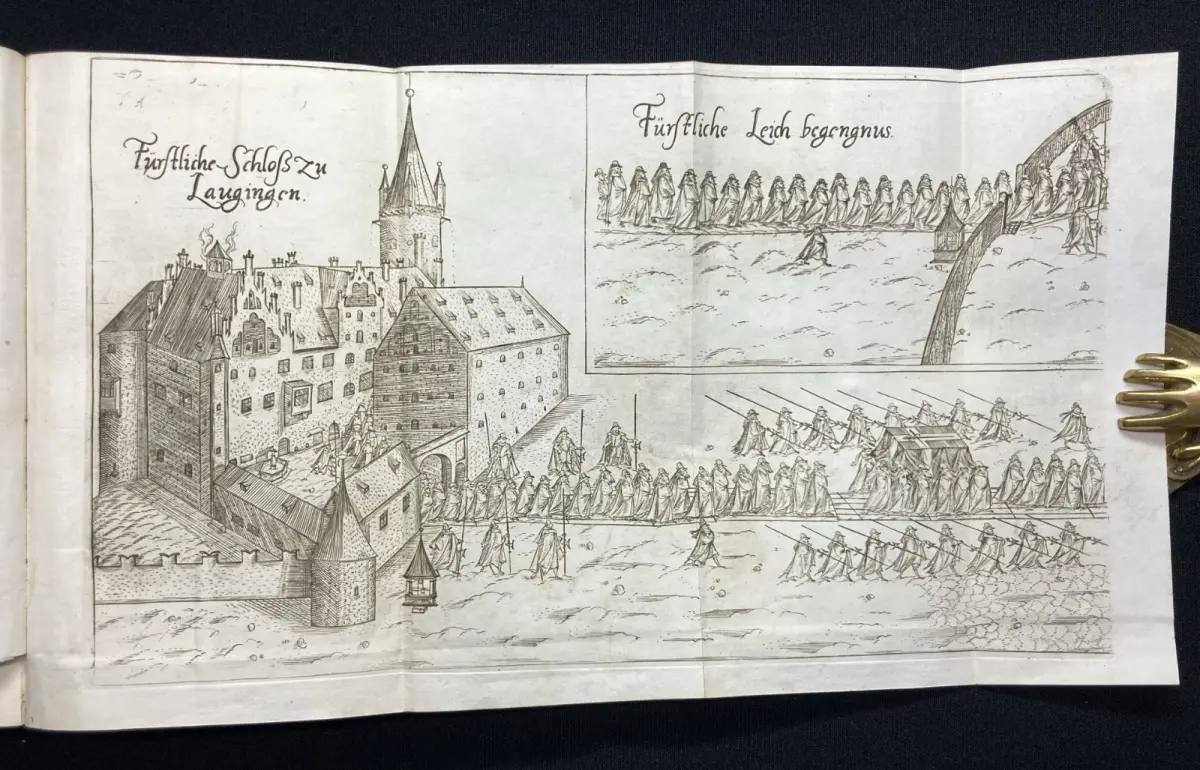 Fürstliche Schloß zu
Laugingen.
Fürstliche Leich begengnus.